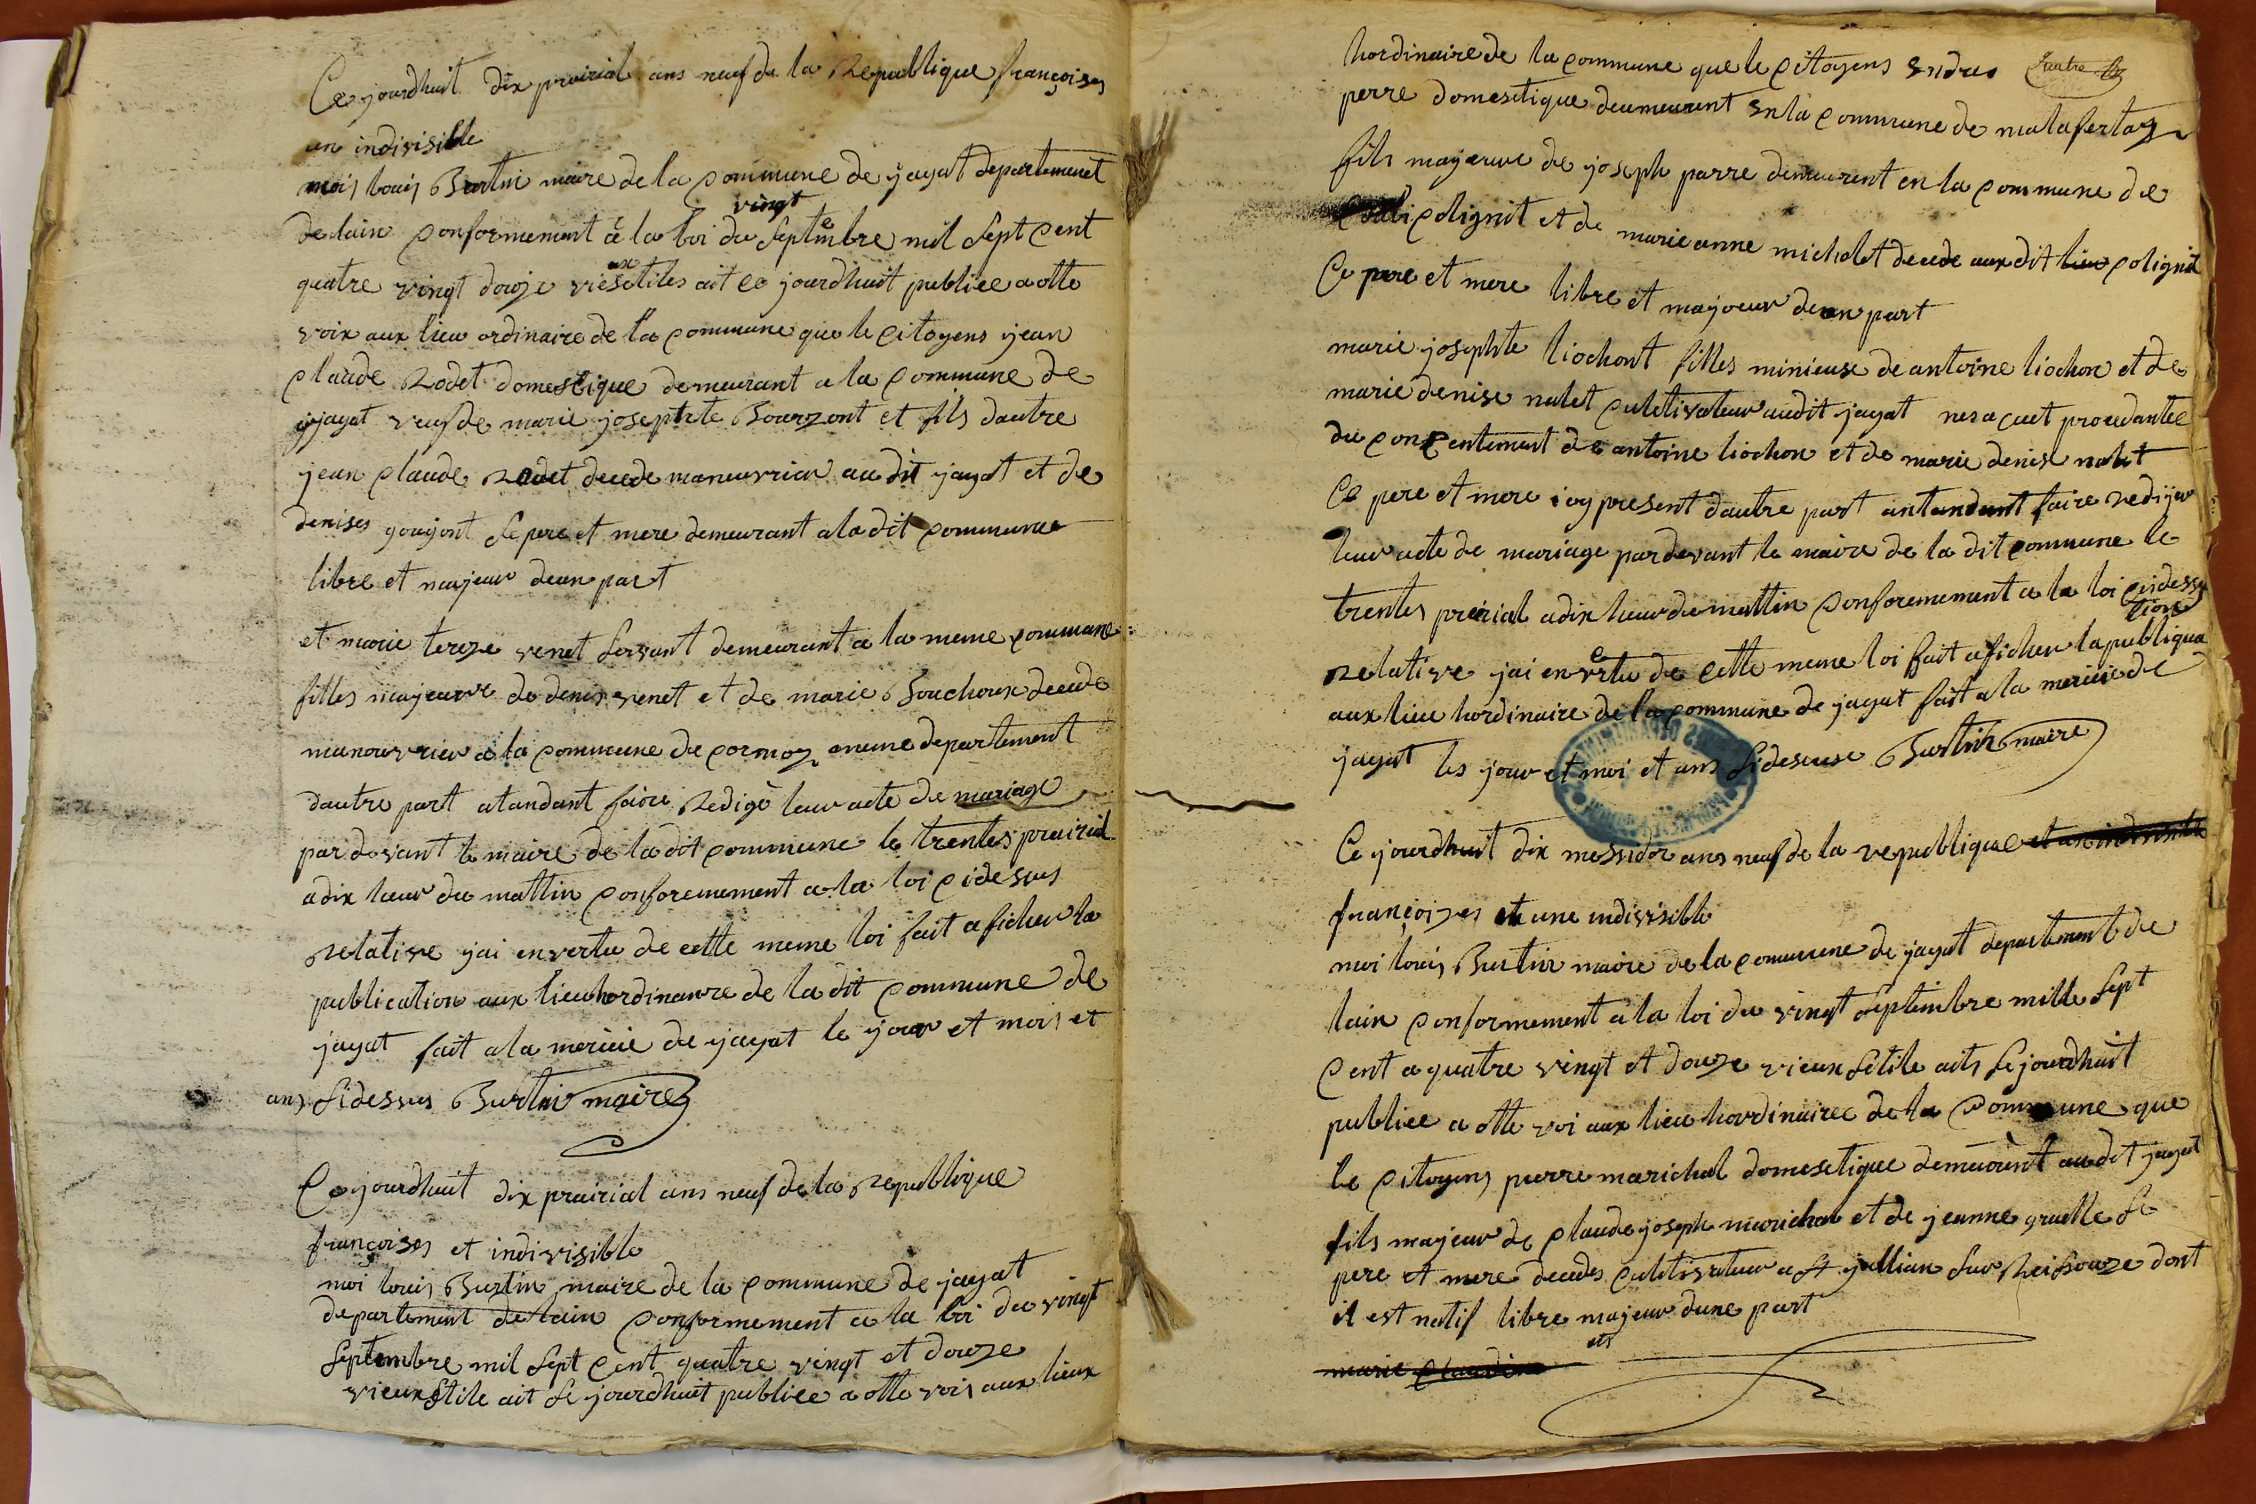 Ce jourdhuit dix prairial ans neuf de la Republique françoises
un indivisible
moi louis Burtin maire de la commune de jayat departement
delain conformement à la loi du vingt Septembre mil Sept cent
quatre vingt douze viesxstiles ait ce jourdhuit publiee a otte
voix aux lieu ordinaire de la commune que le citoyens jean
claude Rodet domestique demeurant a la commune de
jayat veuf de marie josephte Bourzont et fils dautre
jean claude Rodet decede maneuvrier au dit jayat et de
denises goujont Se pere et mere demeurant a la dit commune
libre et majeur deun part
et marie tereze venet Servant demeurant a la meme commune
filles majeure de denis venett et de marie Bouchoux decede
manouvrier a la commune de cormoz meme departement
dautre part atandant faire Redigè leur acte de mariage
par devant le maire de la dit commune le trentes prairial
a dix heur du mattin conforemement a la loi cidessus
Relative jai en vertu de cette meme loi fait aficher la
publication aux lieu hordinairre de la dit commune de
jayat fait a la meriie de jayat le jour et mois et
ans Sidessus Burtin maire
Ce jourdhuit dix prairial ans neuf de la Republique
françoises et indivisible
moi louis Burtin maire de la commune de jayat
departement de lain conformement a la loi du vingt
Septembre mil Sept cent quatre vingt et douze
vieux Stile ait Se jourdhuit publiee a otte vois aux lieux
hordinaire de la commune que le citoyens andres quatre
perre domesetique deumeurent en la commune de malafertaz
fils mayeure de joseph parre demeurent en la commune de
colignit et de marie anne micholet decede aux dit lieu colignit
Ce pere et mere libre et mayoeur deun part
marie josephte liochont filles minieuse de antoine liochon et de
marie denise nalet culetivateur audit jayat
du concentement de antoine liochon et de marie denise nalet
Ce pere et mere icy present dautre part antandant faire redijer
leur acte de mariage par devant le maire de la dit commune le
trentes preirial a dix heur du mattin conforemement a la loi cidessus
Relative jai en vertu de cette meme loi fait aficher la publiqua tion
aux lieu hordinaire de la commune de jayat fait a la meriiie de
jayat les jour et moi et ans Sidesuse Burtin maire
Ce jourdhuit dix messidor ans neuf de la republique et un indivisible
françoizes et une indivisible
moi louis Burtin maire de la commune de jayat departement de
lain conformement a la loi du vingt Septembre mille Sept
cent a quatre vingt et douze vieux Setile aits Se jourdhuit
publiee a otte voi aux lieu hordinairee de la commune que
le citoyens pierre marichal domesetique demeurent au dit jayat
fils majeur de claude joseph marichal et de jeanne gruelle Se
pere et mere decedes culetivateur a St jullian Sur Reisouze dont
il est natif libre majeur dune part
ets
marie claudine